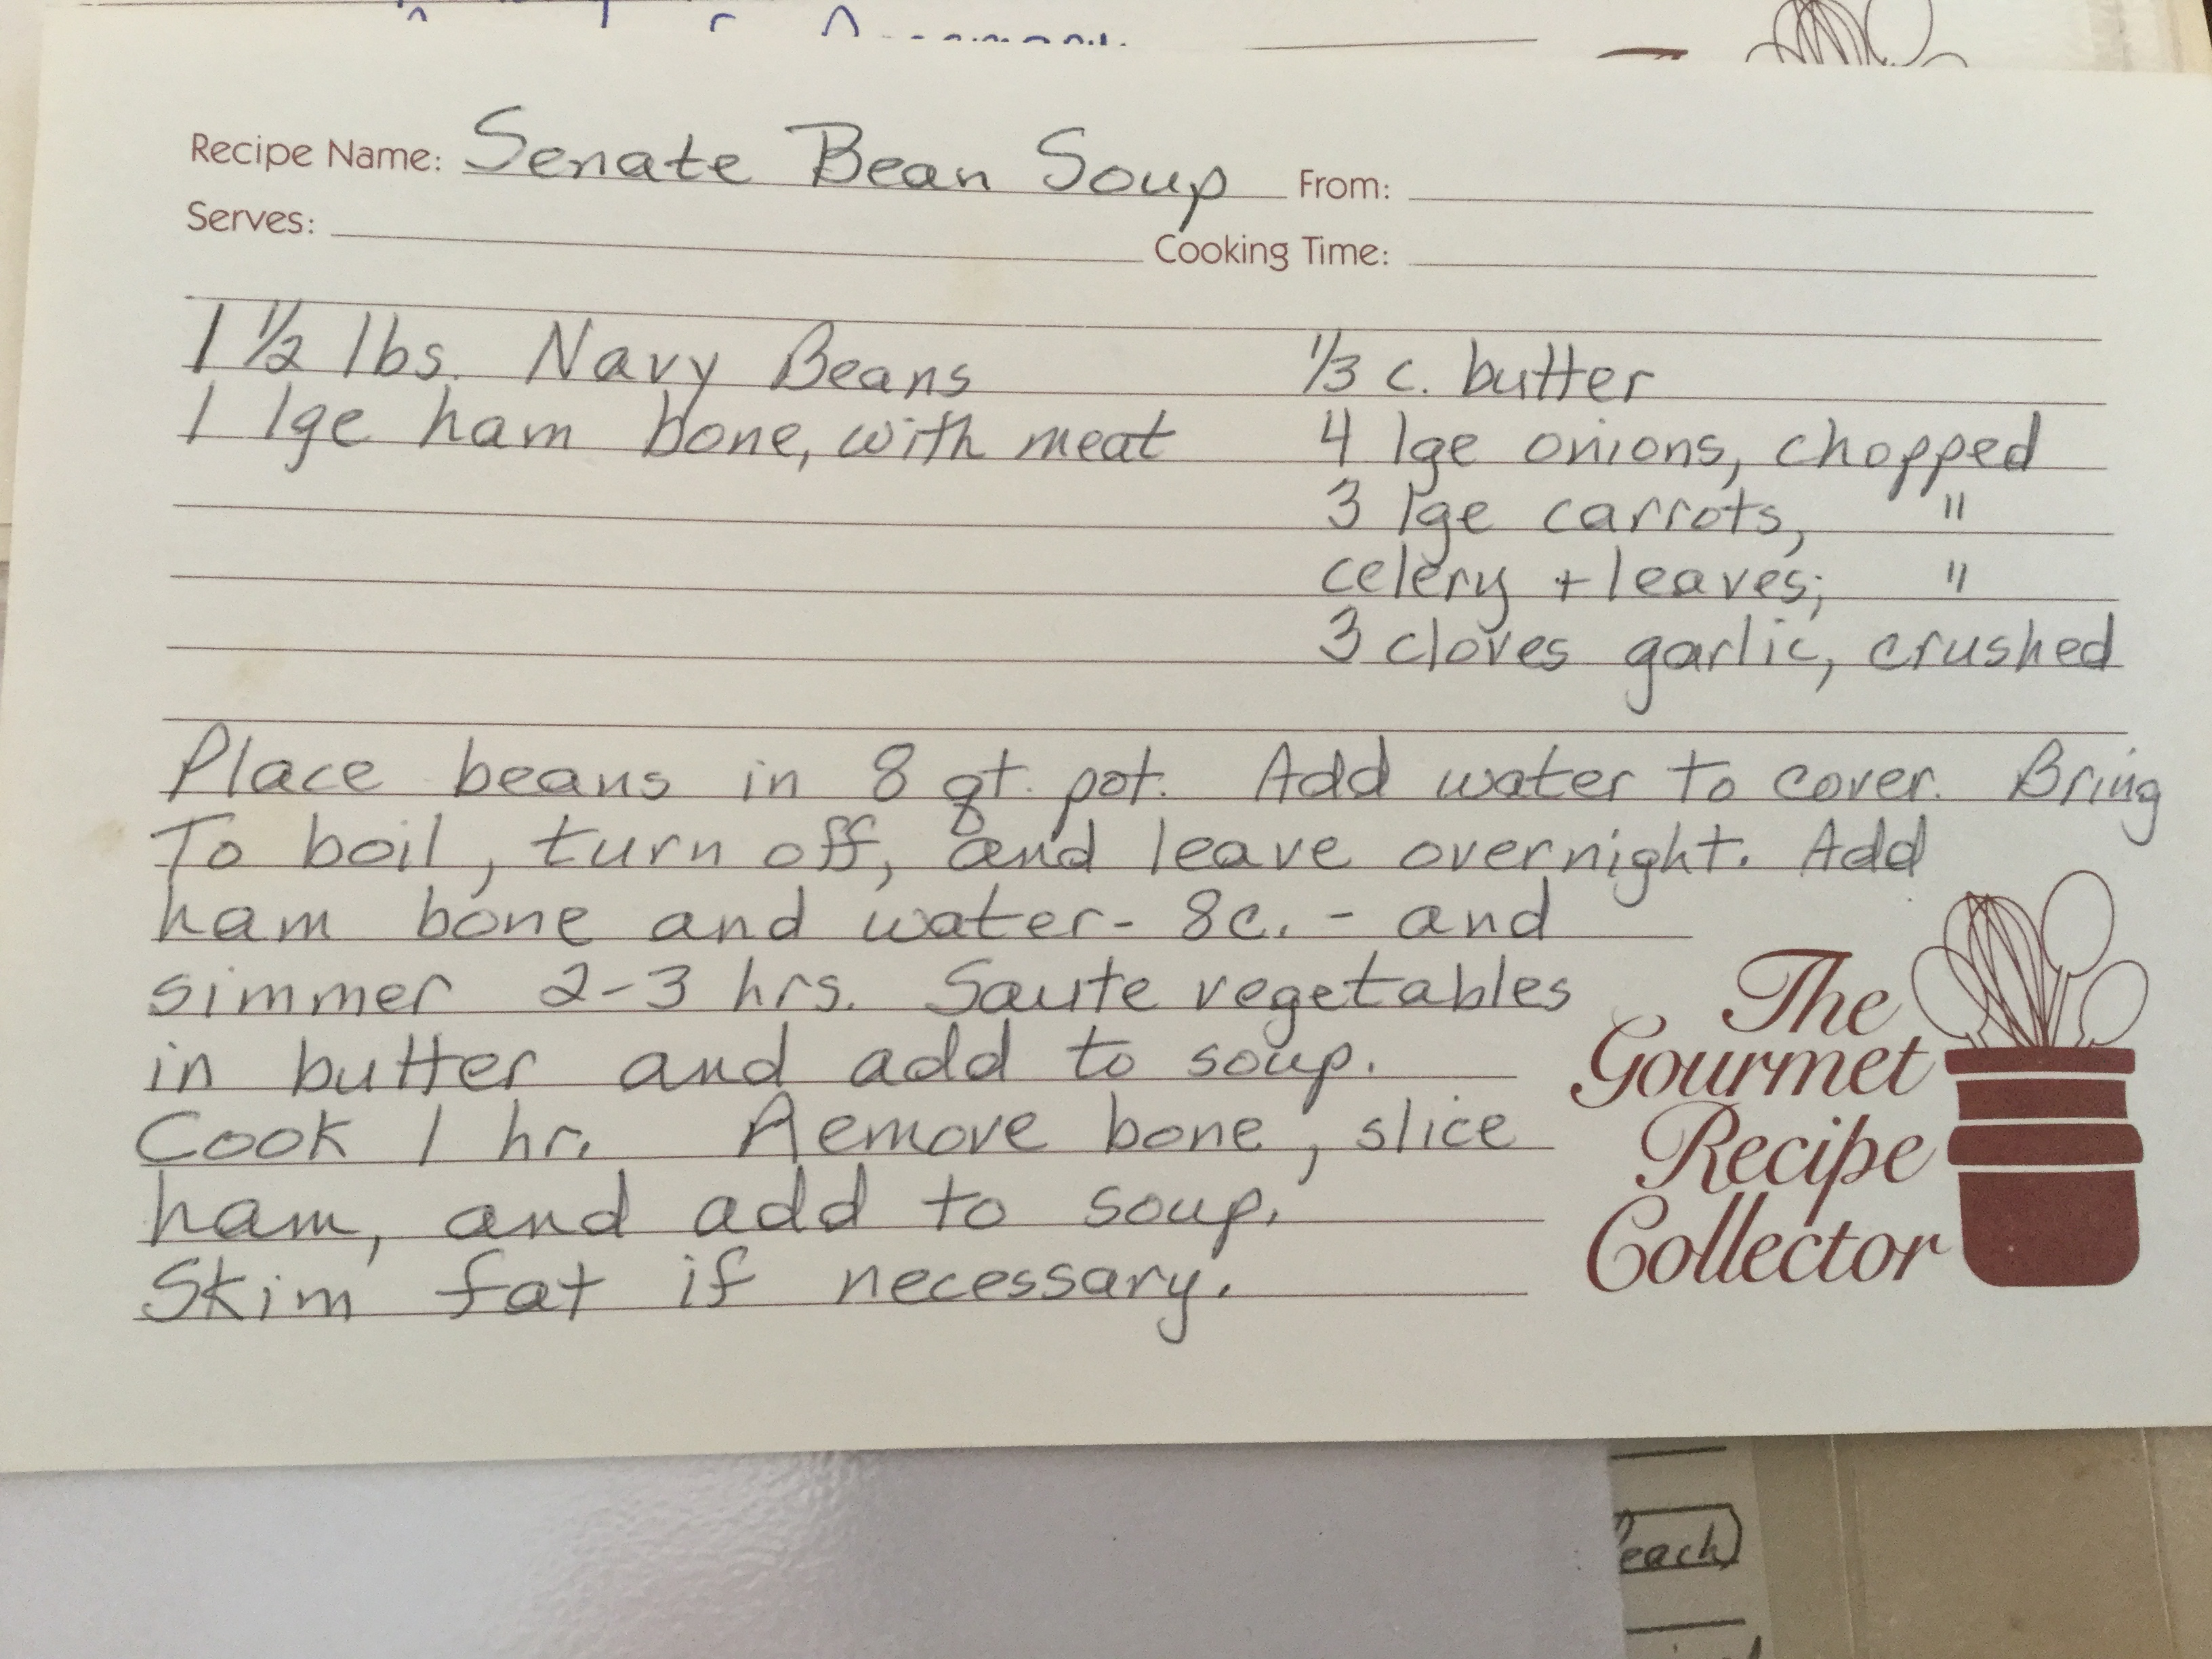 Recipe Name: Senate Bean Soup From:
Serves: Cooking Time:
1 1/2 lbs. Navy Beans
1 lge ham bone, with meat
1/3 c. butter
4 lge onions, chopped
3 lge carrots, "
celery + leaves; "
3 cloves garlic, crushed
Place beans in 8 qt. pot. Add water to cover. Bring
To boil, turn off, and leave overnight. Add
ham bone and water - 8c. - and
simmer 2-3 hrs. Saute vegetables
in butter and add to soup.
Cook 1 hr. Remove bone, slice
ham, and add to soup.
Skim fat if necessary.
The
Gourmet
Recipe
Collector